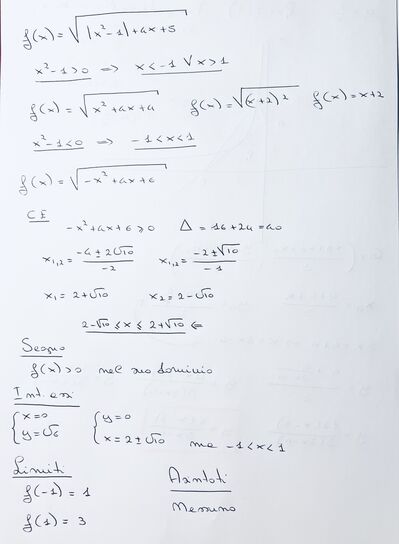 f(x) = √(|x²-1|+4x+5)
x²-1>0 ⇒ x<-1 ∨ x>1
f(x) = √(x²+4x+4) f(x) = √((x+2)²) f(x) = x+2
x²-1<0 ⇒ -1<x<1
f(x) = √(-x²+4x+6)
C E
-x²+4x+6≥0 Δ = 16+24=40
x₁,₂ = (-4±2√10)/-2 x₁,₂ = (-2±√10)/-1
x₁ = 2+√10 x₂ = 2-√10
2-√10 ≤ x ≤ 2+√10 ⇐
Segno
f(x)>0 nel suo dominio
Int. assi
{x=0 {y=0
{y=√6 {x = 2±√10 ma -1<x<1
Limiti Asintoti
f(-1) = 1 Nessuno
f(1) = 3